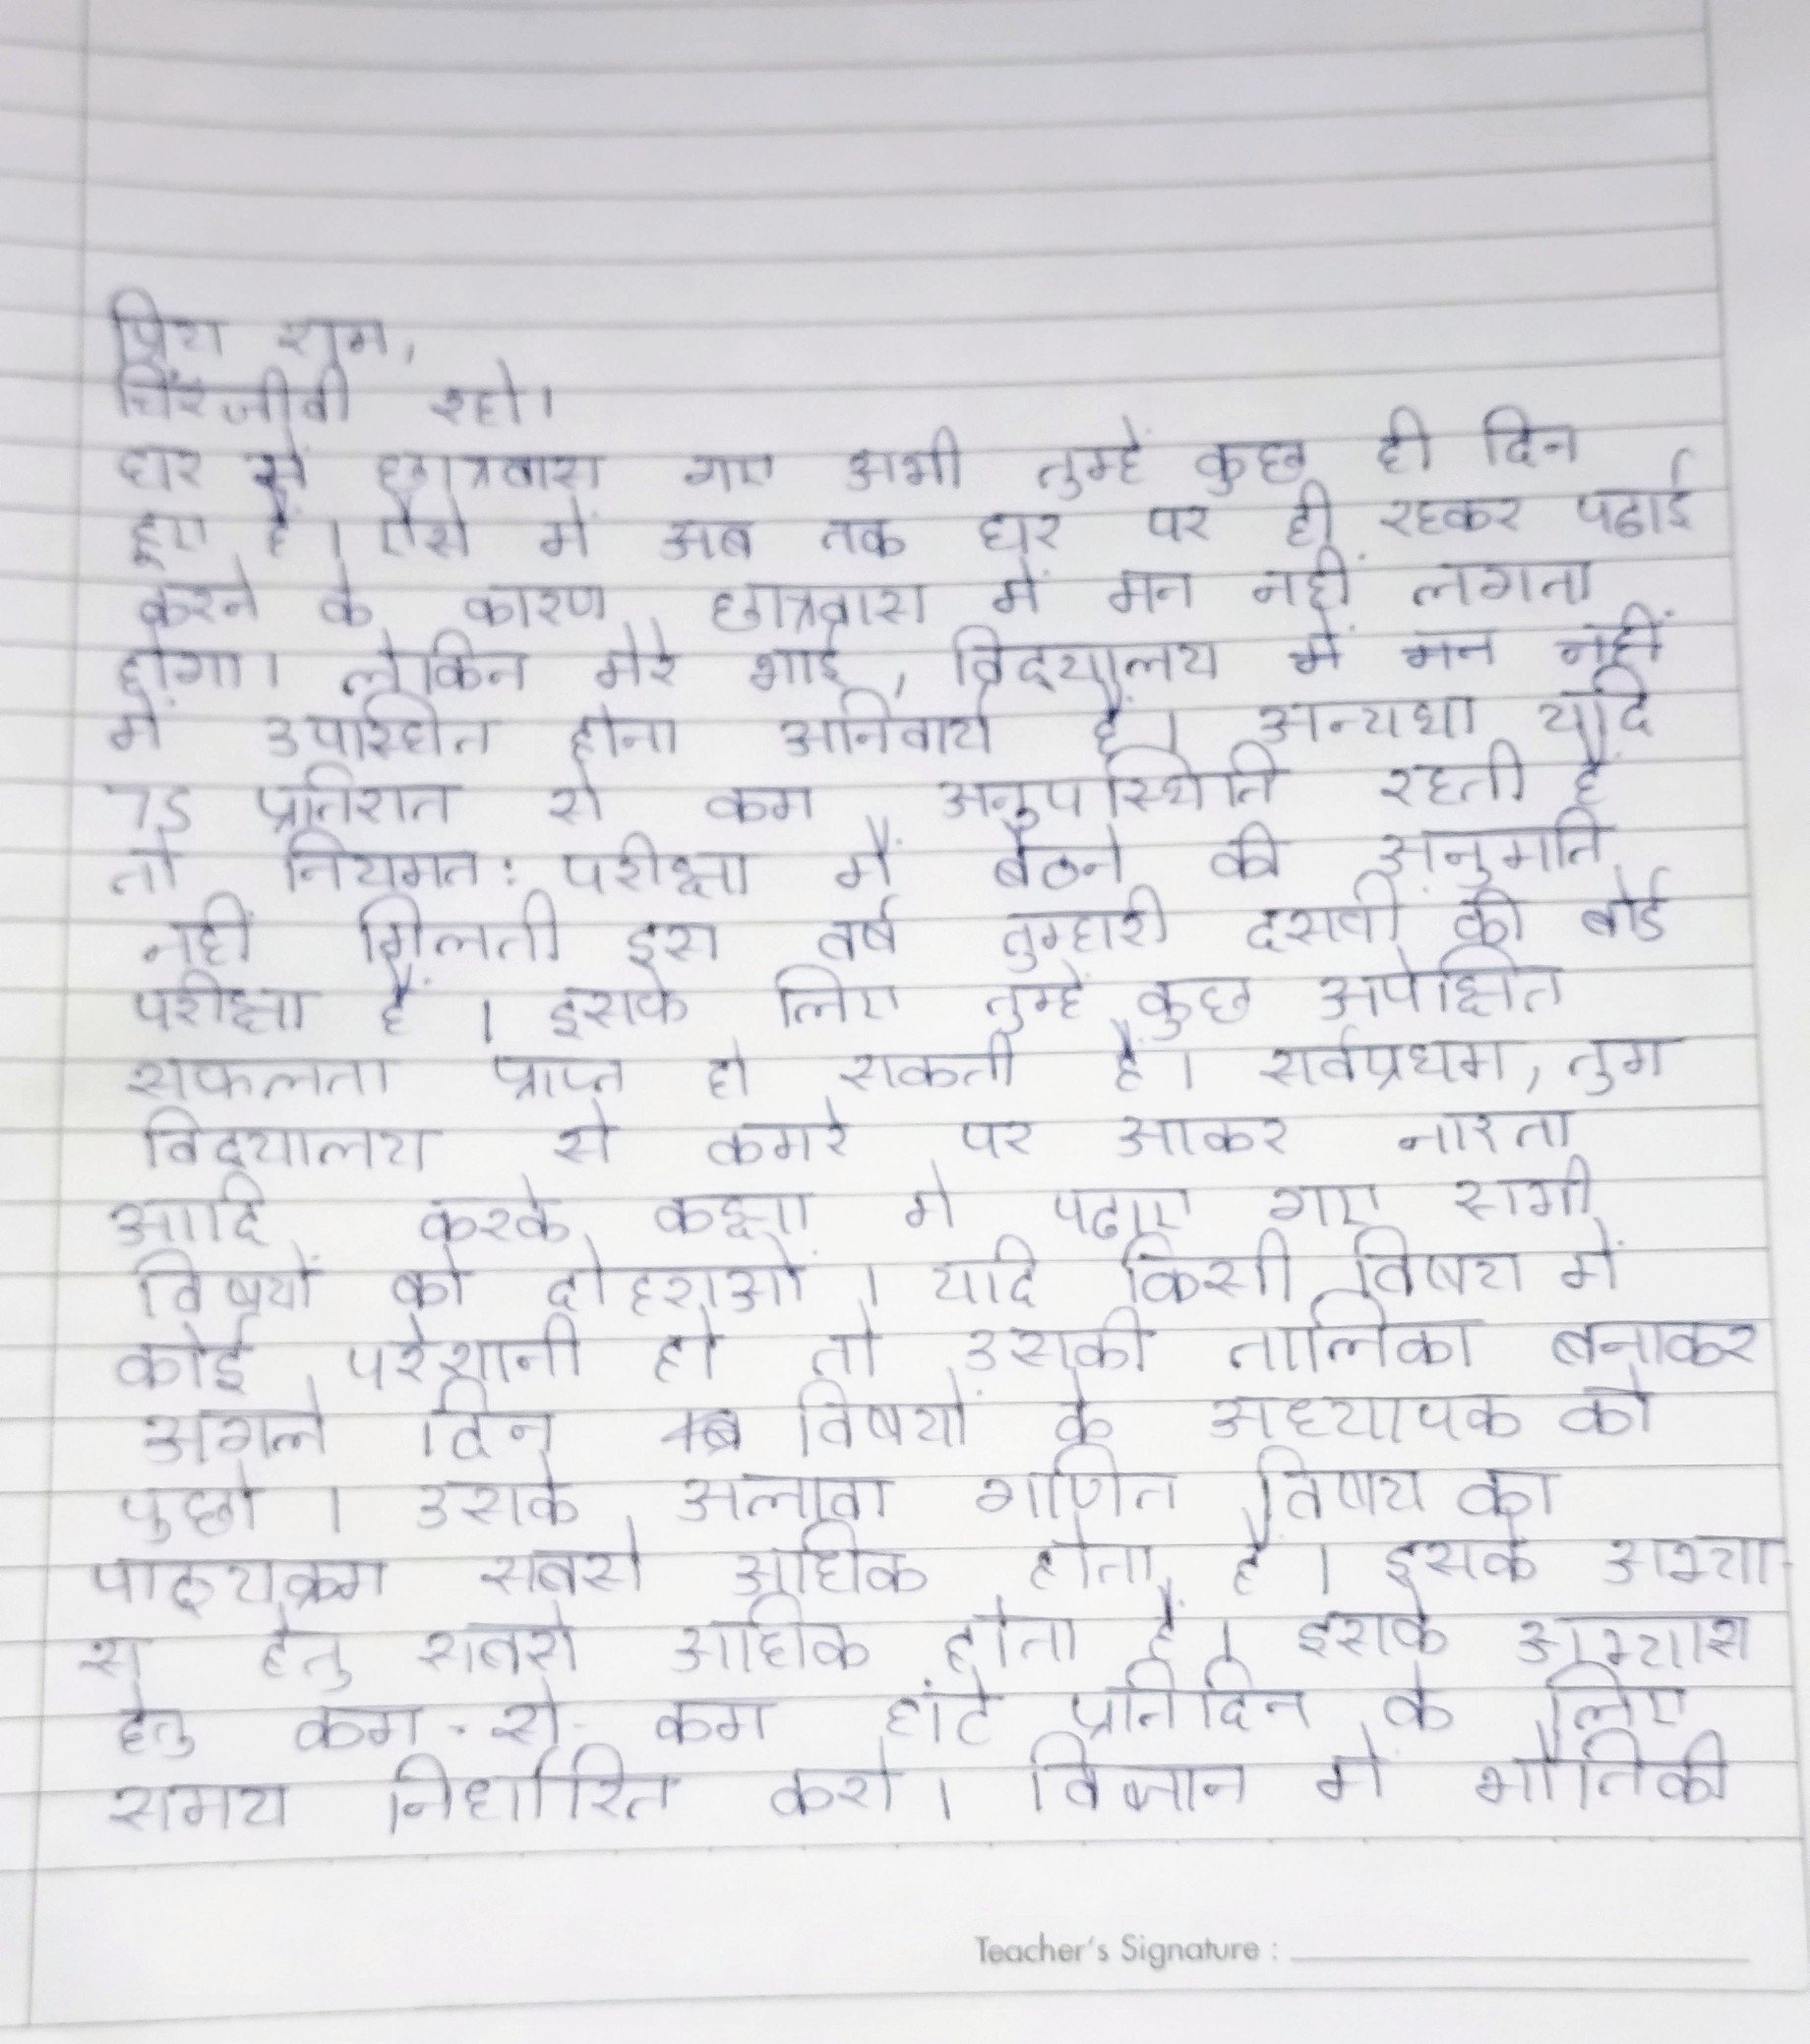 प्रिय राम,
चिरंजीवी रहो।
घर से छात्रवास गए अभी तुम्हें कुछ ही दिन
हुए हैं। ऐसे में अब तक घर पर ही रहकर पढाई
करने के कारण छात्रवास में मन नहीं लगता
होगा। लेकिन मेरे भाई, विद्यालय में मन नहीं
में उपस्थित होना अनिवार्य हैं। अन्यथा यदि
75 प्रतिशत से कम अनुपस्थिति रहती हैं
तो नियमत: परीक्षा में बैठने की अनुमति
नहीं मिलती इस वर्ष तुम्हारी दसवीं की बोर्ड
परीक्षा हैं। इसके लिए तुम्हें कुछ अपेक्षित
सफलता प्राप्त हो सकती हैं। सर्वप्रथम, तुम
विद्यालय से कमरे पर आकर नाश्ता
आदि करके कक्षा मे पढाए गए सभी
विषयों को दोहराओं। यदि किसी विषय में
कोई परेशानी हो तो उसकी तालिका बनाकर
अगले दिन विषयों के अध्यापक को
पुछो। उसके अलावा गणित विषय का
पाठ्यक्रम सबसे अधिक होता हैं। इसके अभ्या-
स हेतु सबसे अधिक होता हैं। इसके अभ्यास
हेतु कम-से-कम घंटे प्रतिदिन के लिए
समय निर्धारित करो। विज्ञान में भौतिकी
Teacher's Signature :